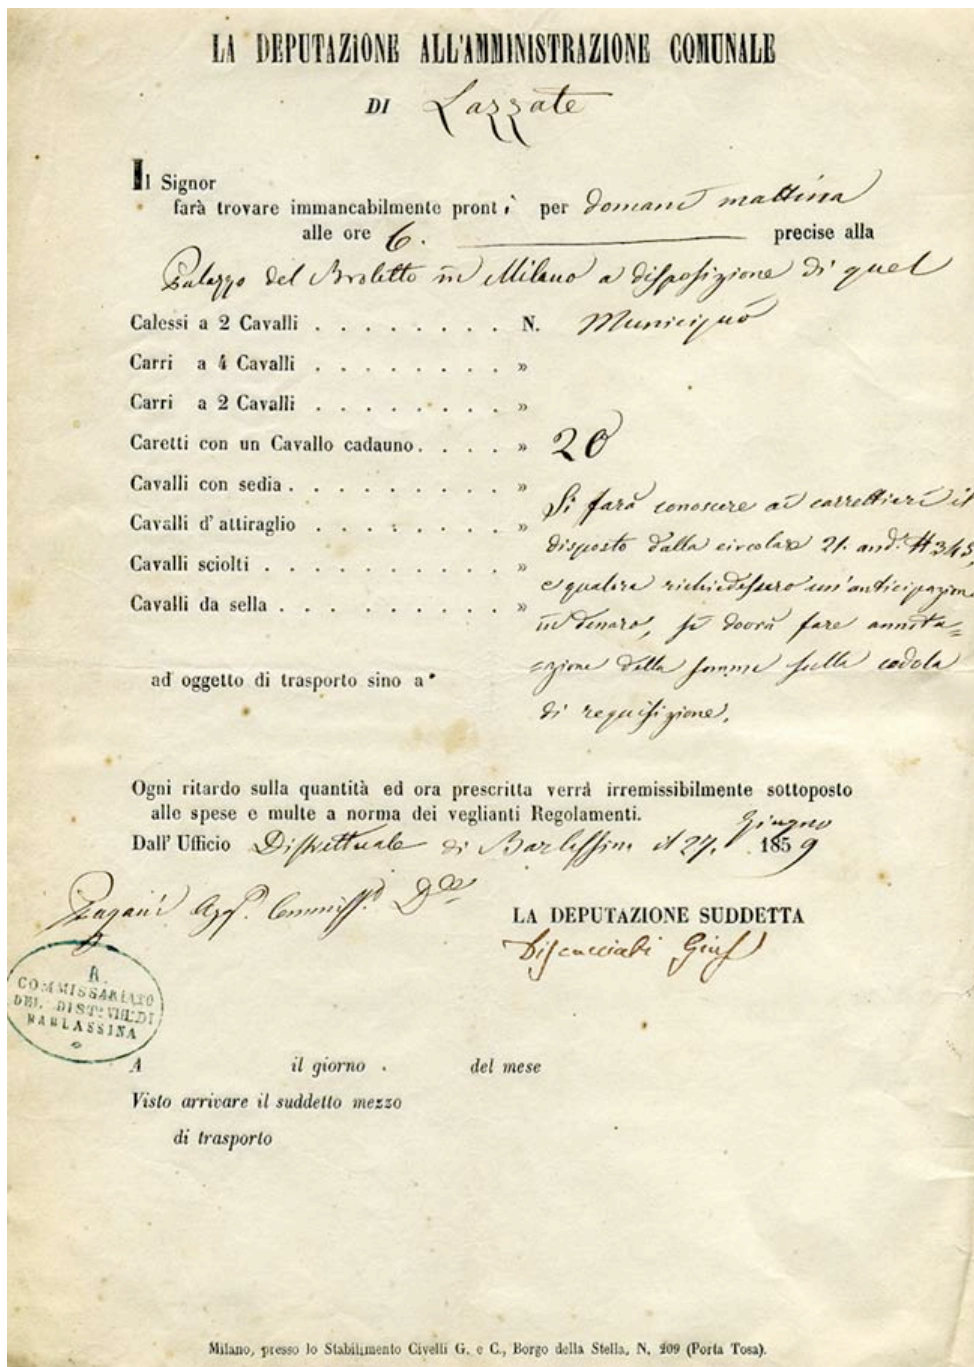 LA DEPUTAZIONE ALL'AMMINISTRAZIONE COMUNALE
DI Lazzate
Il Signor
farà trovare immancabilmente pront i per domani mattina
alle ore 6. precise alla
Palazzo del Broletto in Milano a disposizione di quel
Calessi a 2 Cavalli . . . . . . . . N. Municipio
Carri a 4 Cavalli . . . . . . . . »
Carri a 2 Cavalli . . . . . . . . »
Caretti con un Cavallo cadauno . . . . » 20
Cavalli con sedia . . . . . . . . . »
Cavalli d'attiraglio . . . . . . . . »
Cavalli sciolti . . . . . . . . . . »
Cavalli da sella . . . . . . . . . »
Si farà conoscere ai carrettieri il
disposto dalla circolare 21. and.
e qualora richiedessero un'anticipazione
in denaro, si dovrà fare annota=
=zione della somma sulla cedola
di requisizione.
ad oggetto di trasporto sino a
Ogni ritardo sulla quantità ed ora prescritta verrà irremissibilmente sottoposto
alle spese e multe a norma dei veglianti Regolamenti.
Dall' Ufficio Distrettuale di Barlassina il 27. Giugno 1859
Pagani Agg. Commiss.
LA DEPUTAZIONE SUDDETTA
Discacciati Gius
R.
COMMISSARIATO
DEL DIST. VIII. DI
BARLASSINA
A il giorno . del mese
Visto arrivare il suddetto mezzo
di trasporto
Milano, presso lo Stabilimento Civelli G. e C., Borgo della Stella, N. 209 (Porta Tosa).